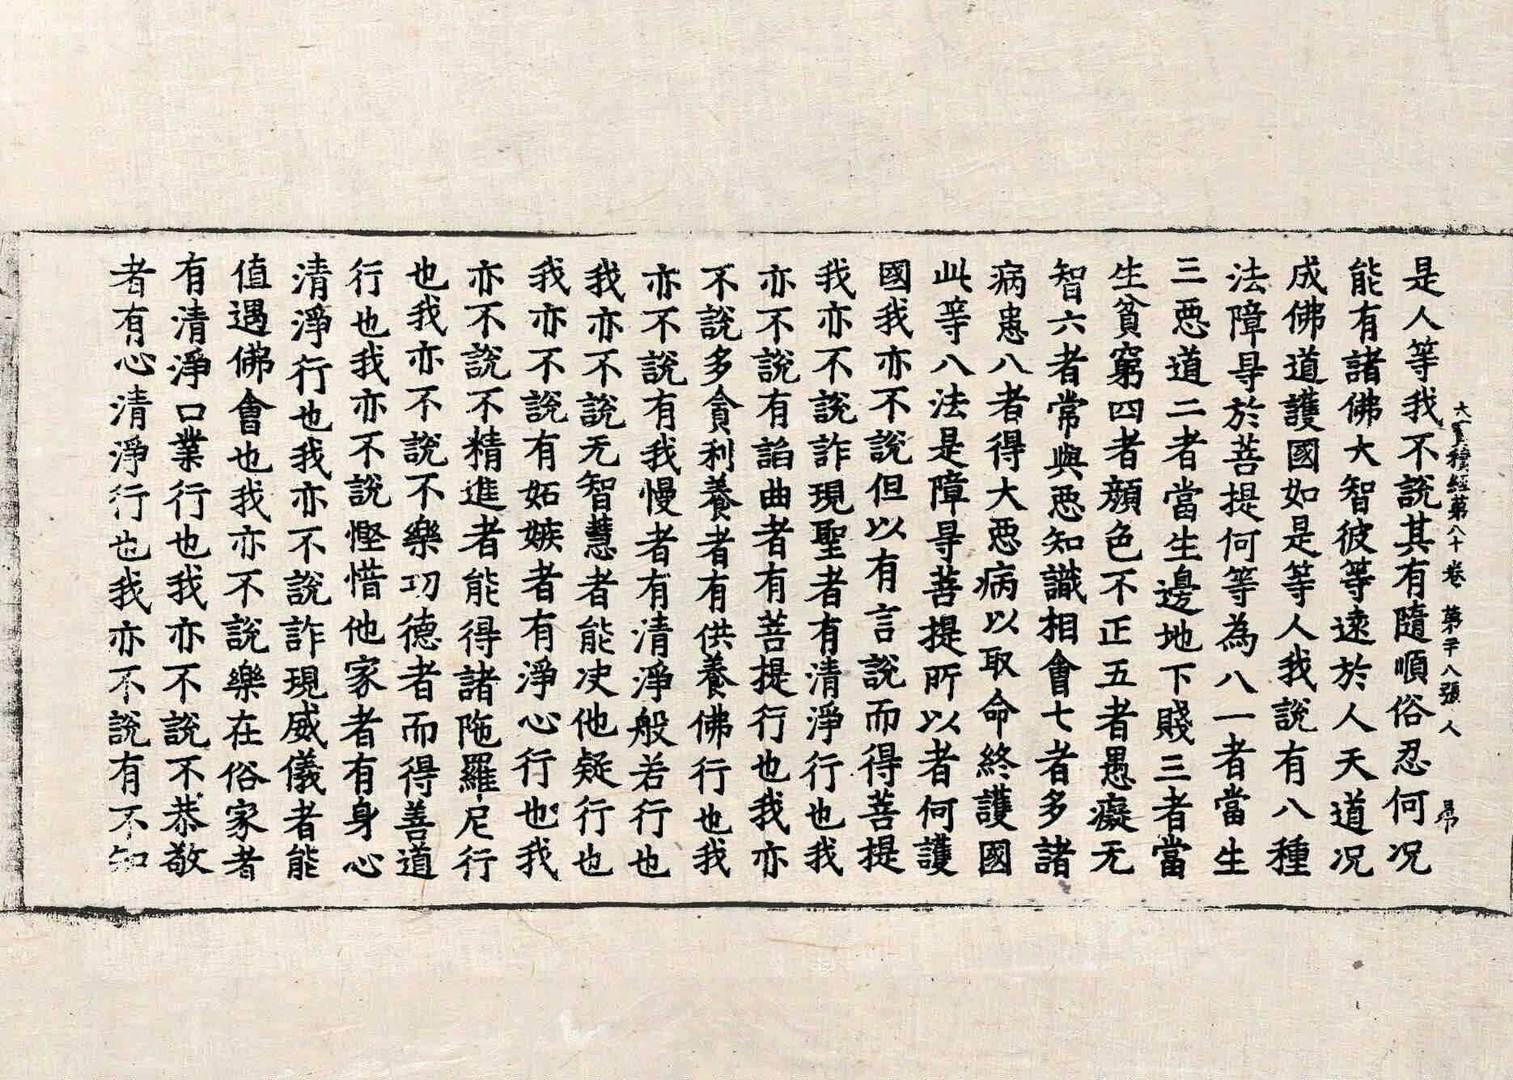 大寶積經第八十卷 第十八張 人 帛
是人等我不說其有隨順俗忍何况
能有諸佛大智彼等遠於人天道况
成佛道護國如是等人我說有八種
法障㝵於菩提何等為八一者當生
三惡道二者當生邊地下賤三者當
生貧窮四者顔色不正五者愚癡无
智六者常與惡知識相會七者多諸
病患八者得大惡病以取命終護國
此等八法是障㝵菩提所以者何護
國我亦不說但以有言說而得菩提
我亦不說詐現聖者有清淨行也我
亦不說有諂曲者有菩提行也我亦
不說多貪利養者有供養佛行也我
亦不說有我慢者有清淨般若行也
我亦不說无智慧者能决他疑行也
我亦不說有妬嫉者有淨心行也我
亦不說不精進者能得諸陁羅尼行
也我亦不說不樂功德者而得善道
行也我亦不說慳惜他家者有身心
清淨行也我亦不說詐現威儀者能
值遇佛會也我亦不說樂在俗家者
有清淨口業行也我亦不說不恭敬
者有心清淨行也我亦不說有不知